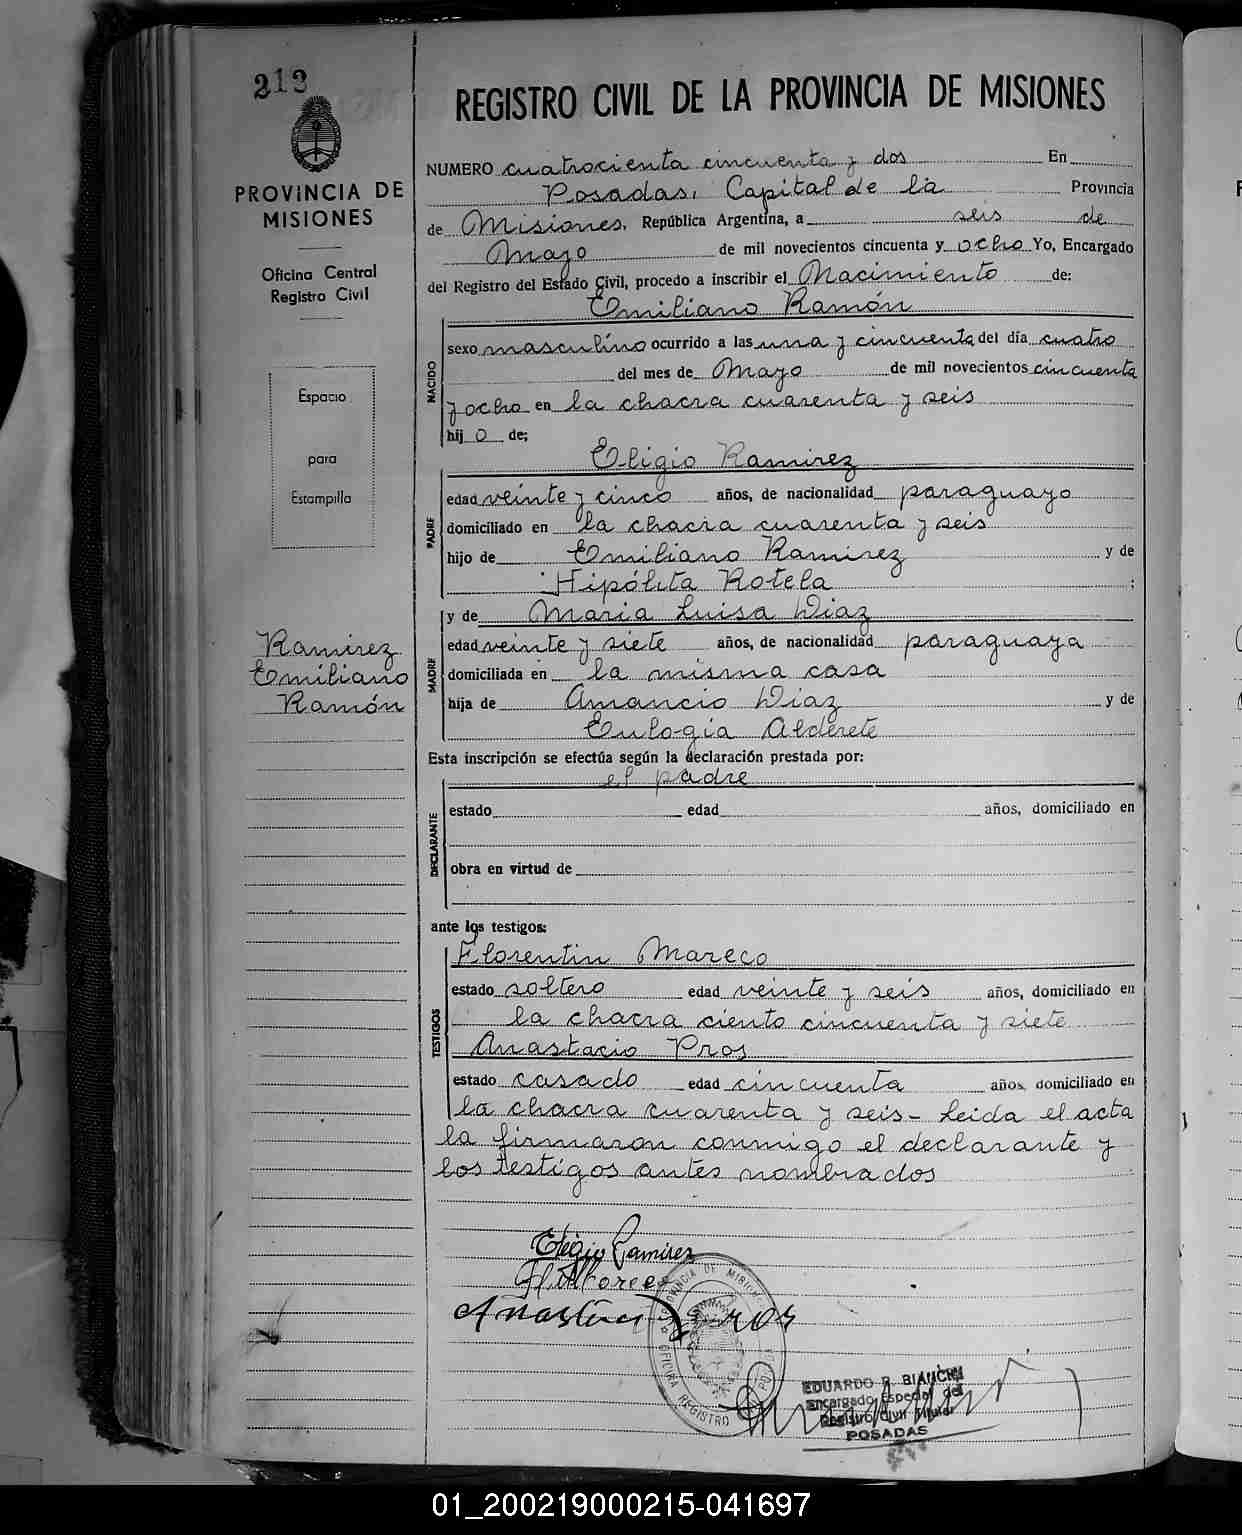 212
PROVINCIA DE
MISIONES
Oficina Central
Registro Civil
Espacio
para
Estampilla
Ramirez
Emiliano
Ramón
REGISTRO CIVIL DE LA PROVINCIA DE MISIONES
NUMERO cuatrocienta cincuenta y dos En
Posadas, Capital de la Provincia
de Misiones, República Argentina, a seis de
Mayo de mil novecientos cincuenta y ocho Yo, Encargado
del Registro del Estado Civil, procedo a inscribir el Nacimiento de:
Emiliano Ramón
NACIDO
sexo masculino ocurrido a las una y cincuenta del día cuatro
del mes de Mayo de mil novecientos cincuenta
y ocho en la chacra cuarenta y seis
hijo de;
Eligio Ramirez
PADRE
edad veinte y cinco años, de nacionalidad paraguayo
domiciliado en la chacra cuarenta y seis
hijo de Emiliano Ramirez y de
Hipólita Rotela ;
y de Maria Luisa Diaz
MADRE
edad veinte y siete años, de nacionalidad paraguaya
domiciliada en la misma casa
hija de Amancio Diaz y de
Eulogia Alderete
Esta inscripción se efectúa según la declaración prestada por:
el padre
DECLARANTE
estado edad años, domiciliado en
obra en virtud de
ante los testigos:
Florentin Mareco
TESTIGOS
estado soltero edad veinte y seis años, domiciliado en
la chacra ciento cincuenta y siete
Anastacio Pros
estado casado edad cincuenta años, domiciliado en
la chacra cuarenta y seis - Leida el acta
la firmaron conmigo el declarante y
los testigos antes nombrados
Eligio Ramirez
PROVINCIA DE MISIONES
OFICINA REGISTRO
EDUARDO R. BIANCHI
Encargado Especial del
Registro Civil Titular
POSADAS
01_200219000215-041697